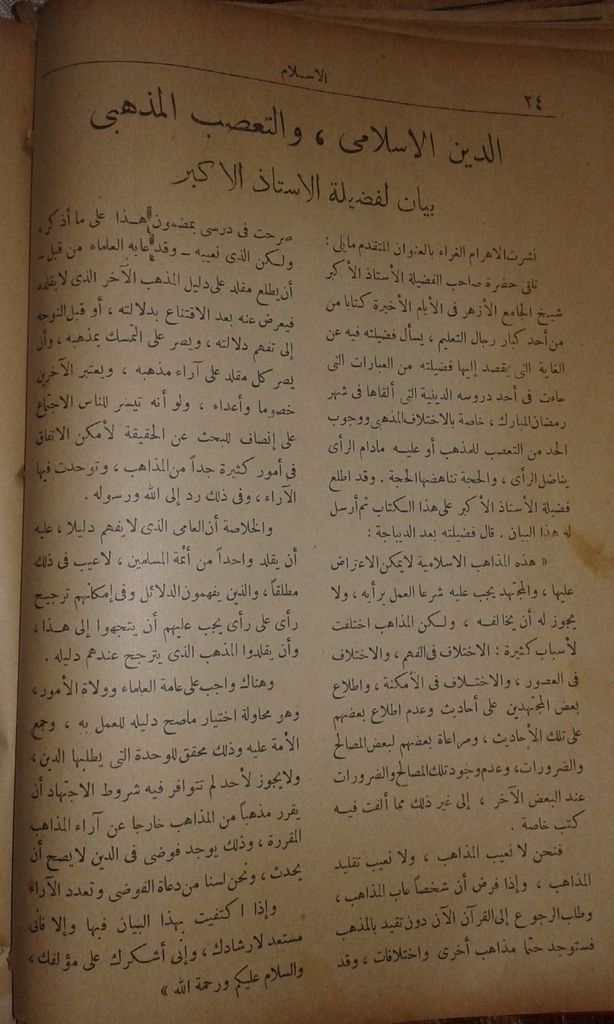 ٢٤
الاسلام
الدين الاسلامى ، والتعصب المذهبى
بيان لفضيلة الاستاذ الاكبر
نشرت الاهرام الغراء بالعنوان المتقدم مايلى :
تلقى حضرة صاحب الفضيلة الأستاذ الأكبر
شيخ الجامع الأزهر فى الأيام الأخيرة كتابا من
من أحد كبار رجال التعليم ، يسأل فضيلته فيه عن
الغاية التى يقصد إليها فضيلته من العبارات التى
جاءت فى أحد دروسه الدينية التى ألقاها فى شهر
رمضان المبارك ، خاصة بالاختلاف المذهبى ووجوب
الحد من التعصب للمذهب أو عليه مادام الرأى
يناضل الرأى ، والحجة تناهضها الحجة . وقد اطلع
فضيلة الأستاذ الأكبر على هذا الكتاب ثم أرسل
له هذا البيان . قال فضيلته بعد الديباجة :
« هذه المذاهب الاسلامية لايمكن الاعتراض
عليها ، والمجتهد يجب عليه شرعا العمل برأيه ، ولا
يجوز له أن يخالفه ، ولكن المذاهب اختلفت
لأسباب كثيرة : الاختلاف فى الفهم ، والاختلاف
فى العصور ، والاختلاف فى الأمكنة ، واطلاع
بعض المجتهدين على أحاديث وعدم اطلاع بعضهم
على تلك الأحاديث ، ومراعاة بعضهم لبعض المصالح
والضرورات، وعدم وجود تلك المصالح والضرورات
عند البعض الآخر ، إلى غير ذلك مما ألفت فيه
كتب خاصة .
فنحن لا نعيب المذاهب ، ولا نعيب تقليد
المذاهب ، وإذا فرض أن شخصاً عاب المذاهب ،
وطاب الرجوع إلى القرآن الآن دون تقيد بالمذهب
فستوجد حتما مذاهب أخرى واختلافات ، وقد
صرحت فى درسى بمضمون هذا على ما أذكر،
ولكن الذى نعيبه ـ وقد عابه العلماء من قبل ـ
أن يطلع مقلد على دليل المذهب الآخر الذى لايقلده
فيعرض عنه بعد الاقتناع بدلالته ، أو قبل التوجه
إلى تفهم دلالته ، ويصر على التمسك بمذهبه ، وأن
يصر كل مقلد على آراء مذهبه ، ويعتبر الآخرين
خصوما وأعداء ، ولو أنه تيسر للناس الاجتماع
على إنصاف للبحث عن الحقيقة لأمكن الاتفاق
فى أمور كثيرة جداً من المذاهب ، وتوحدت فيها
الآراء ، وفى ذلك رد إلى الله ورسوله .
والخلاصة أن العامى الذى لايفهم دليلا ، عليه
أن يقلد واحداً من أئمة المسلمين ، لاعيب فى ذلك
مطلقاً ، والذين يفهمون الدلائل وفى إمكانهم ترجيح
رأى على رأى يجب عليهم أن يتجهوا إلى هذا ،
وأن يقلدوا المذهب الذى يترجح عندهم دليله .
وهناك واجب على عامة العلماء وولاة الأمور ،
وهو محاولة اختيار ماصح دليله للعمل به ، وجمع
الأمة عليه وذلك محقق للوحدة التى يطلبها الدين ،
ولايجوز لأحد لم تتوافر فيه شروط الاجتهاد أن
يقرر مذهباً من المذاهب خارجا عن آراء المذاهب
المقررة ، وذلك يوجد فوضى فى الدين لايصح أن
يحدث ، ونحن لسنا من دعاة الفوضى وتعدد الآراء
وإذا اكتفيت بهذا البيان فبها وإلا فانى
مستعد لارشادك ، وإنى أشكرك على مؤلفك ،
والسلام عليكم ورحمة الله »